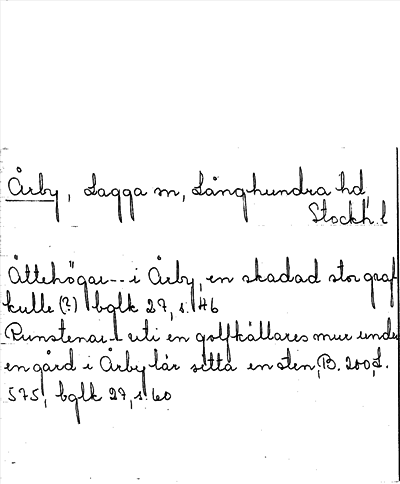 Årby, Lagga sn, Långhundra hd,
Stockh. l
Ättehögar -- i Årby, en skadad stor graf
kulle (?), bglk 27, s. 46
Runstenar -- uti en golfkällares mur under
en gård i Årby lär sitta en sten, B. 200, L.
575, bglk 27, s. 60